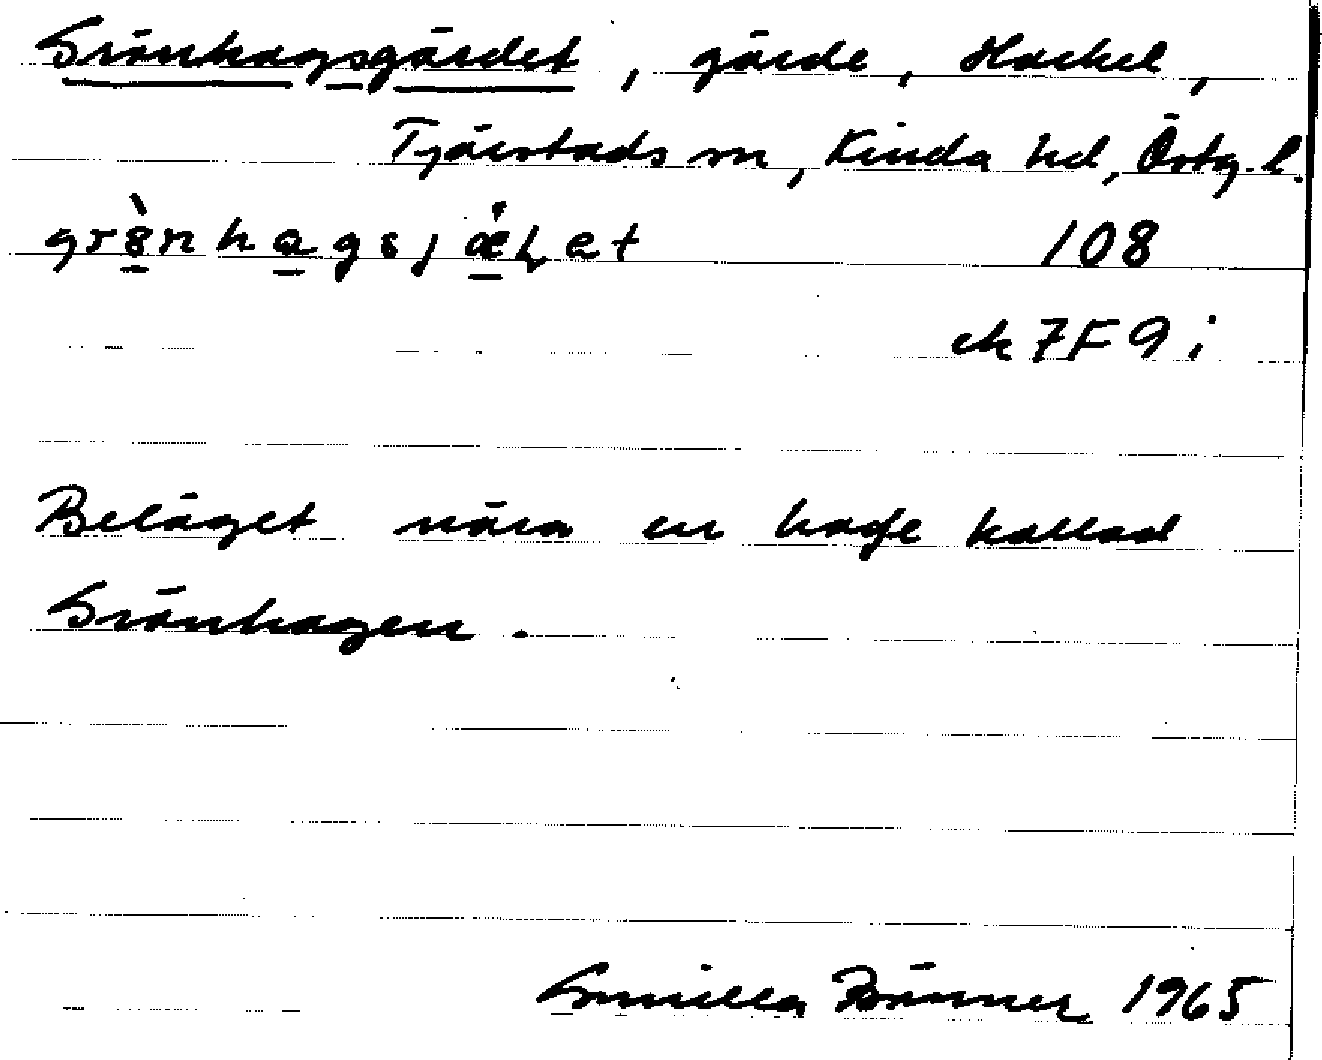 Grönhagsgärdet, gärde, Hackel,
Tjärstads sn, Kinda hd, Östg. l.
grö̀nhagsjæ̇ḷet 108
ek 7F 9 i
Beläget nära en hage kallad
Grönhagen.
Gunilla Brönner 1965